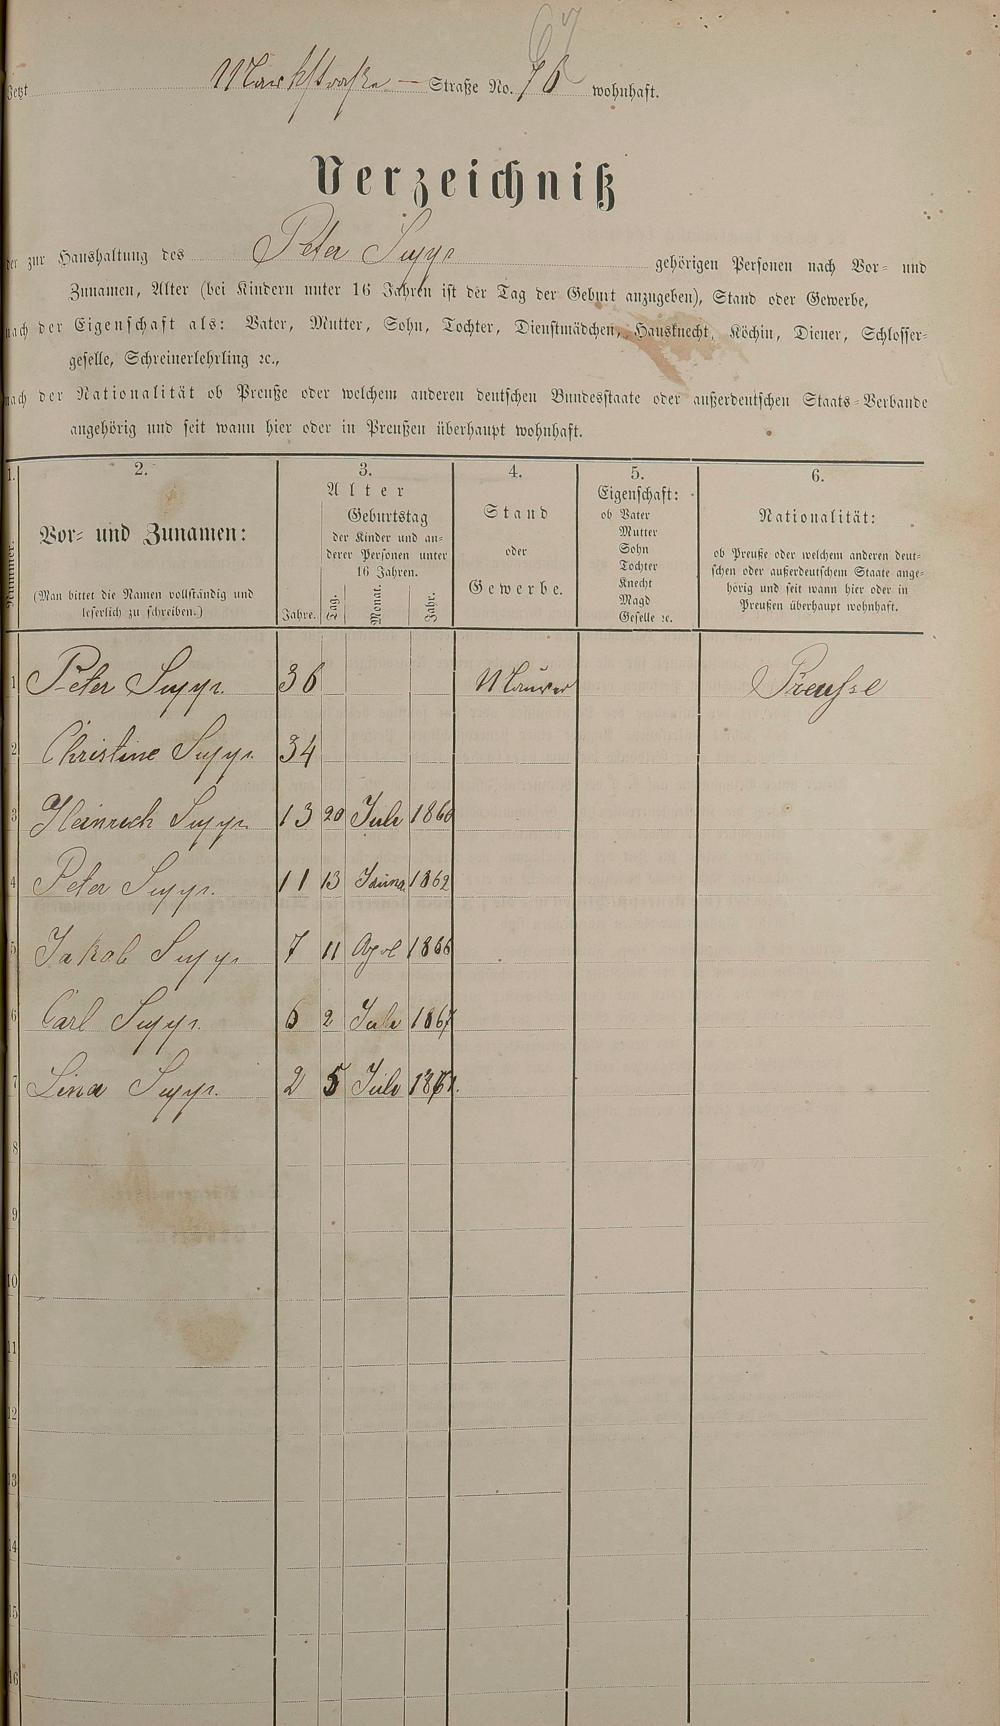 67
Jetzt Markstraße — Straße No. 76 wohnhaft.
Verzeichniß
der zur Haushaltung des Peter Supp gehörigen Personen nach Vor- und
Zunamen, Alter (bei Kindern unter 16 Jahren ist der Tag der Geburt anzugeben), Stand oder Gewerbe,
nach der Eigenschaft als: Vater, Mutter, Sohn, Tochter, Dienstmädchen, Hausknecht, Köchin, Diener, Schlosser-
geselle, Schreinerlehrling ꝛc.,
nach der Nationalität ob Preuße oder welchem anderen deutschen Bundesstaate oder außerdeutschen Staats-Verbande
angehörig und seit wann hier oder in Preußen überhaupt wohnhaft.
1. 2. 3. 4. 5. 6.
Nummer.
Vor- und Zunamen:
(Man bittet die Namen vollständig und
leserlich zu schreiben.)
Alter
Geburtstag
der Kinder und an-
derer Personen unter
16 Jahren.
Jahre. Tag. Monat. Jahr.
Stand
oder
Gewerbe.
Eigenschaft:
ob Vater
Mutter
Sohn
Tochter
Knecht
Magd
Geselle ꝛc.
Nationalität:
ob Preuße oder welchem anderen deut-
schen oder außerdeutschem Staate ange-
hörig und seit wann hier oder in
Preußen überhaupt wohnhaft.
1 Peter Supp. 36 Maurer Preusse
2 Christine Supp. 34
3 Heinrich Supp. 13 20 Juli 1860
4 Peter Supp. 11 13 1862
5 Jakob Supp. 7 11 1866
6 Carl Supp. 6 2 Juli 1867
7 Lina Supp. 2 5 Juli 1871.
8
9
10
11
12
13
14
15
16